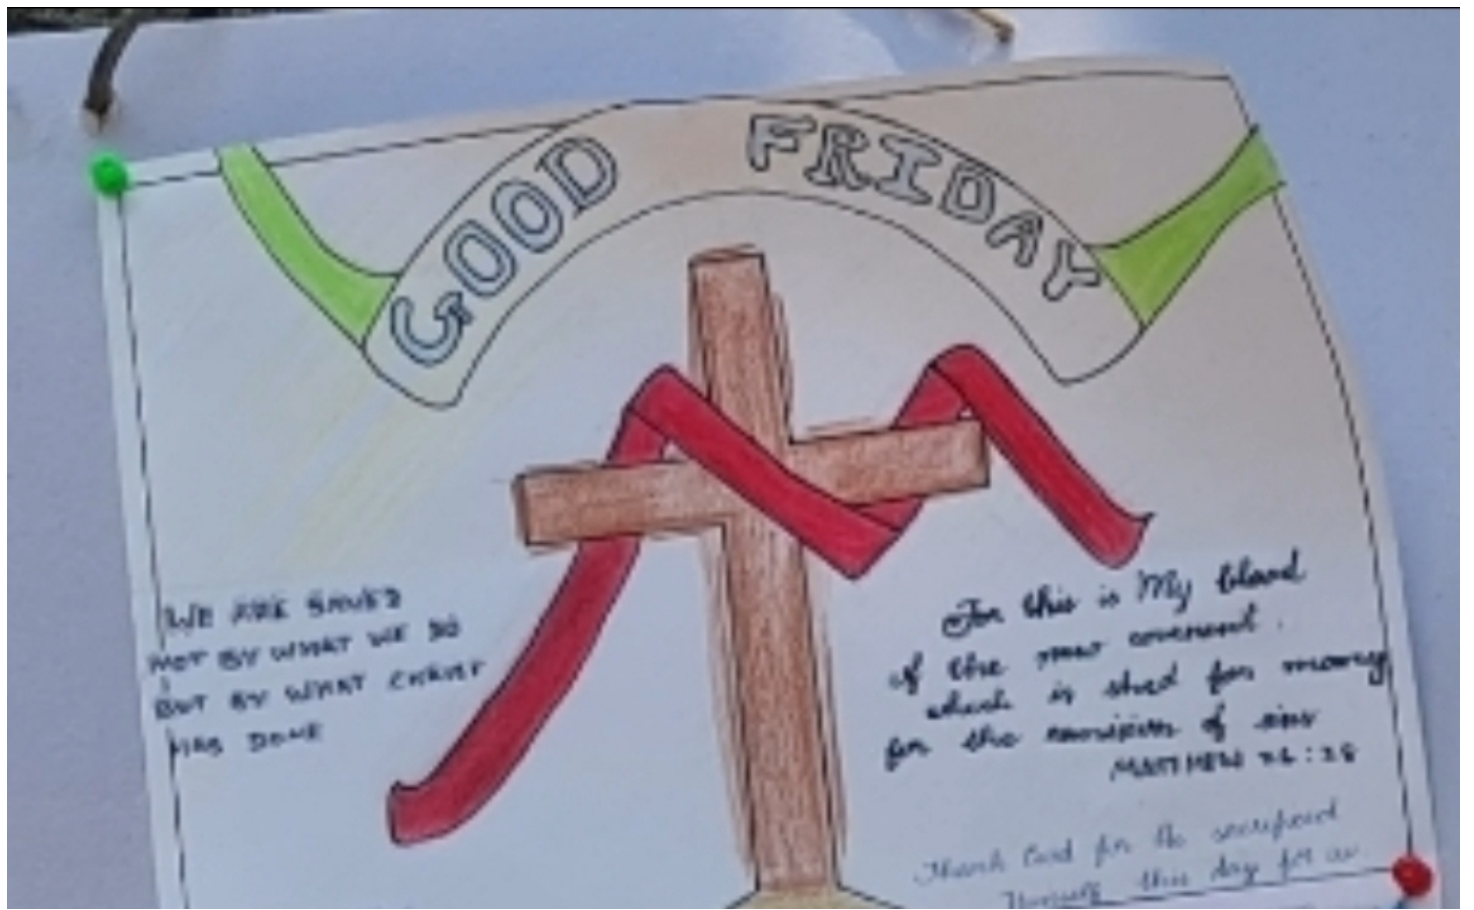 GOOD FRIDAY
WE ARE SAVED
NOT BY WHAT WE DO
BUT BY WHAT CHRIST
HAS DONE
For this is My blood
of the new covenant.
which is shed for many
for the remission of sins
MATTHEW 26:28
Thank God for the sacrificed
Himself this day for us.